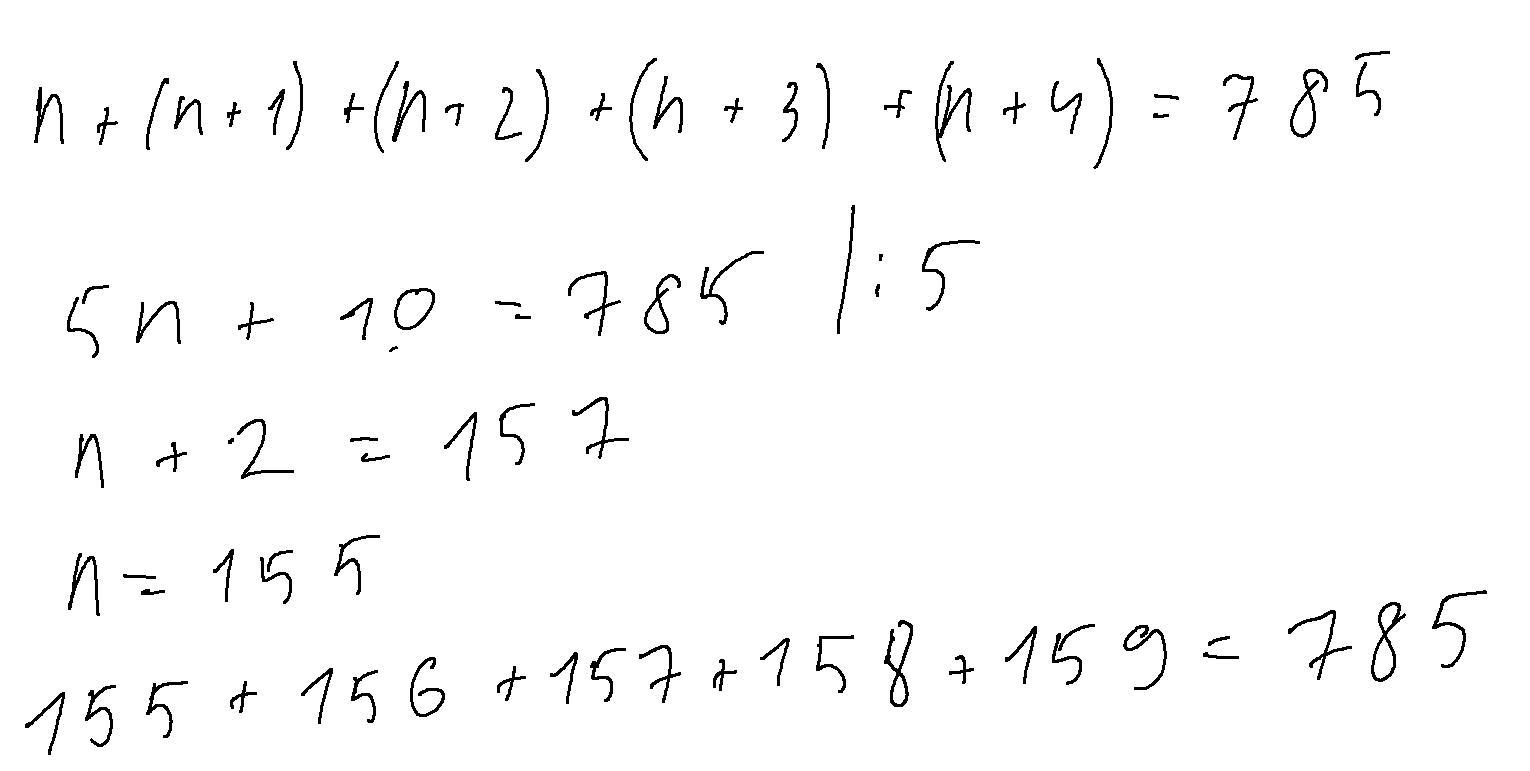 n + (n + 1) + (n + 2) + (n + 3) + (n + 4) = 785
5n + 10 = 785 /: 5
n + 2 = 157
n = 155
155 + 156 + 157 + 158 + 159 = 785